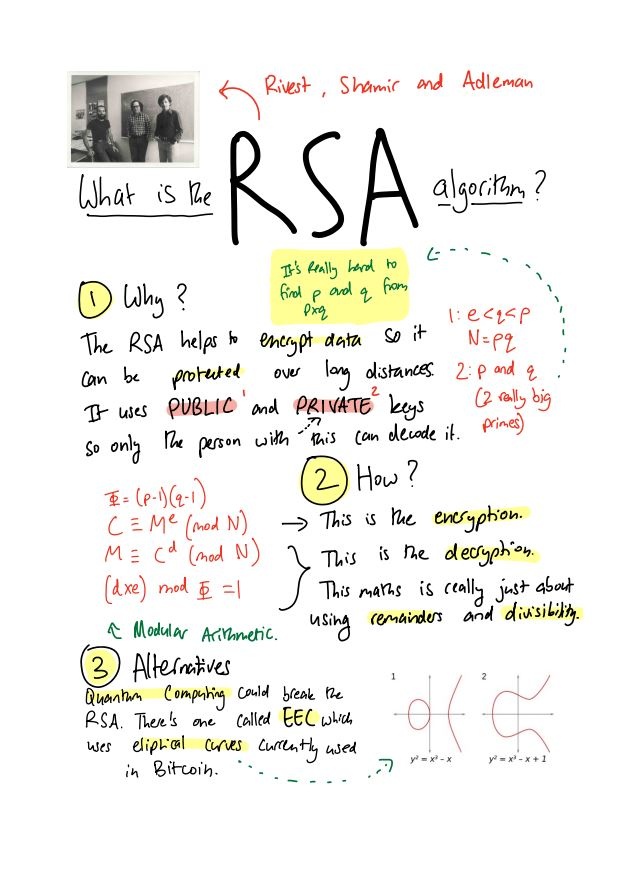 Rivest, Shamir and Adleman
What is the RSA algorithm?
It's really hard to
find p and q from
pxq
1 Why?
The RSA helps to encrypt data so it
can be protected over long distances.
It uses PUBLIC¹ and PRIVATE² keys
so only the person with this can decode it.
1: e<q<p
N=pq
2: p and q
(2 really big
primes)
2 How?
Φ=(p-1)(q-1)
C ≡ M^e (mod N)
M ≡ C^d (mod N)
(dxe) mod Φ =1
→ This is the encryption.
This is the decryption.
This maths is really just about
using remainders and divisibility.
Modular Arithmetic.
3 Alternatives
Quantum Computing could break the
RSA. There's one called EEC which
uses eliptical curves currently used
in Bitcoin.
1
y² = x³ – x
2
y² = x³ – x + 1